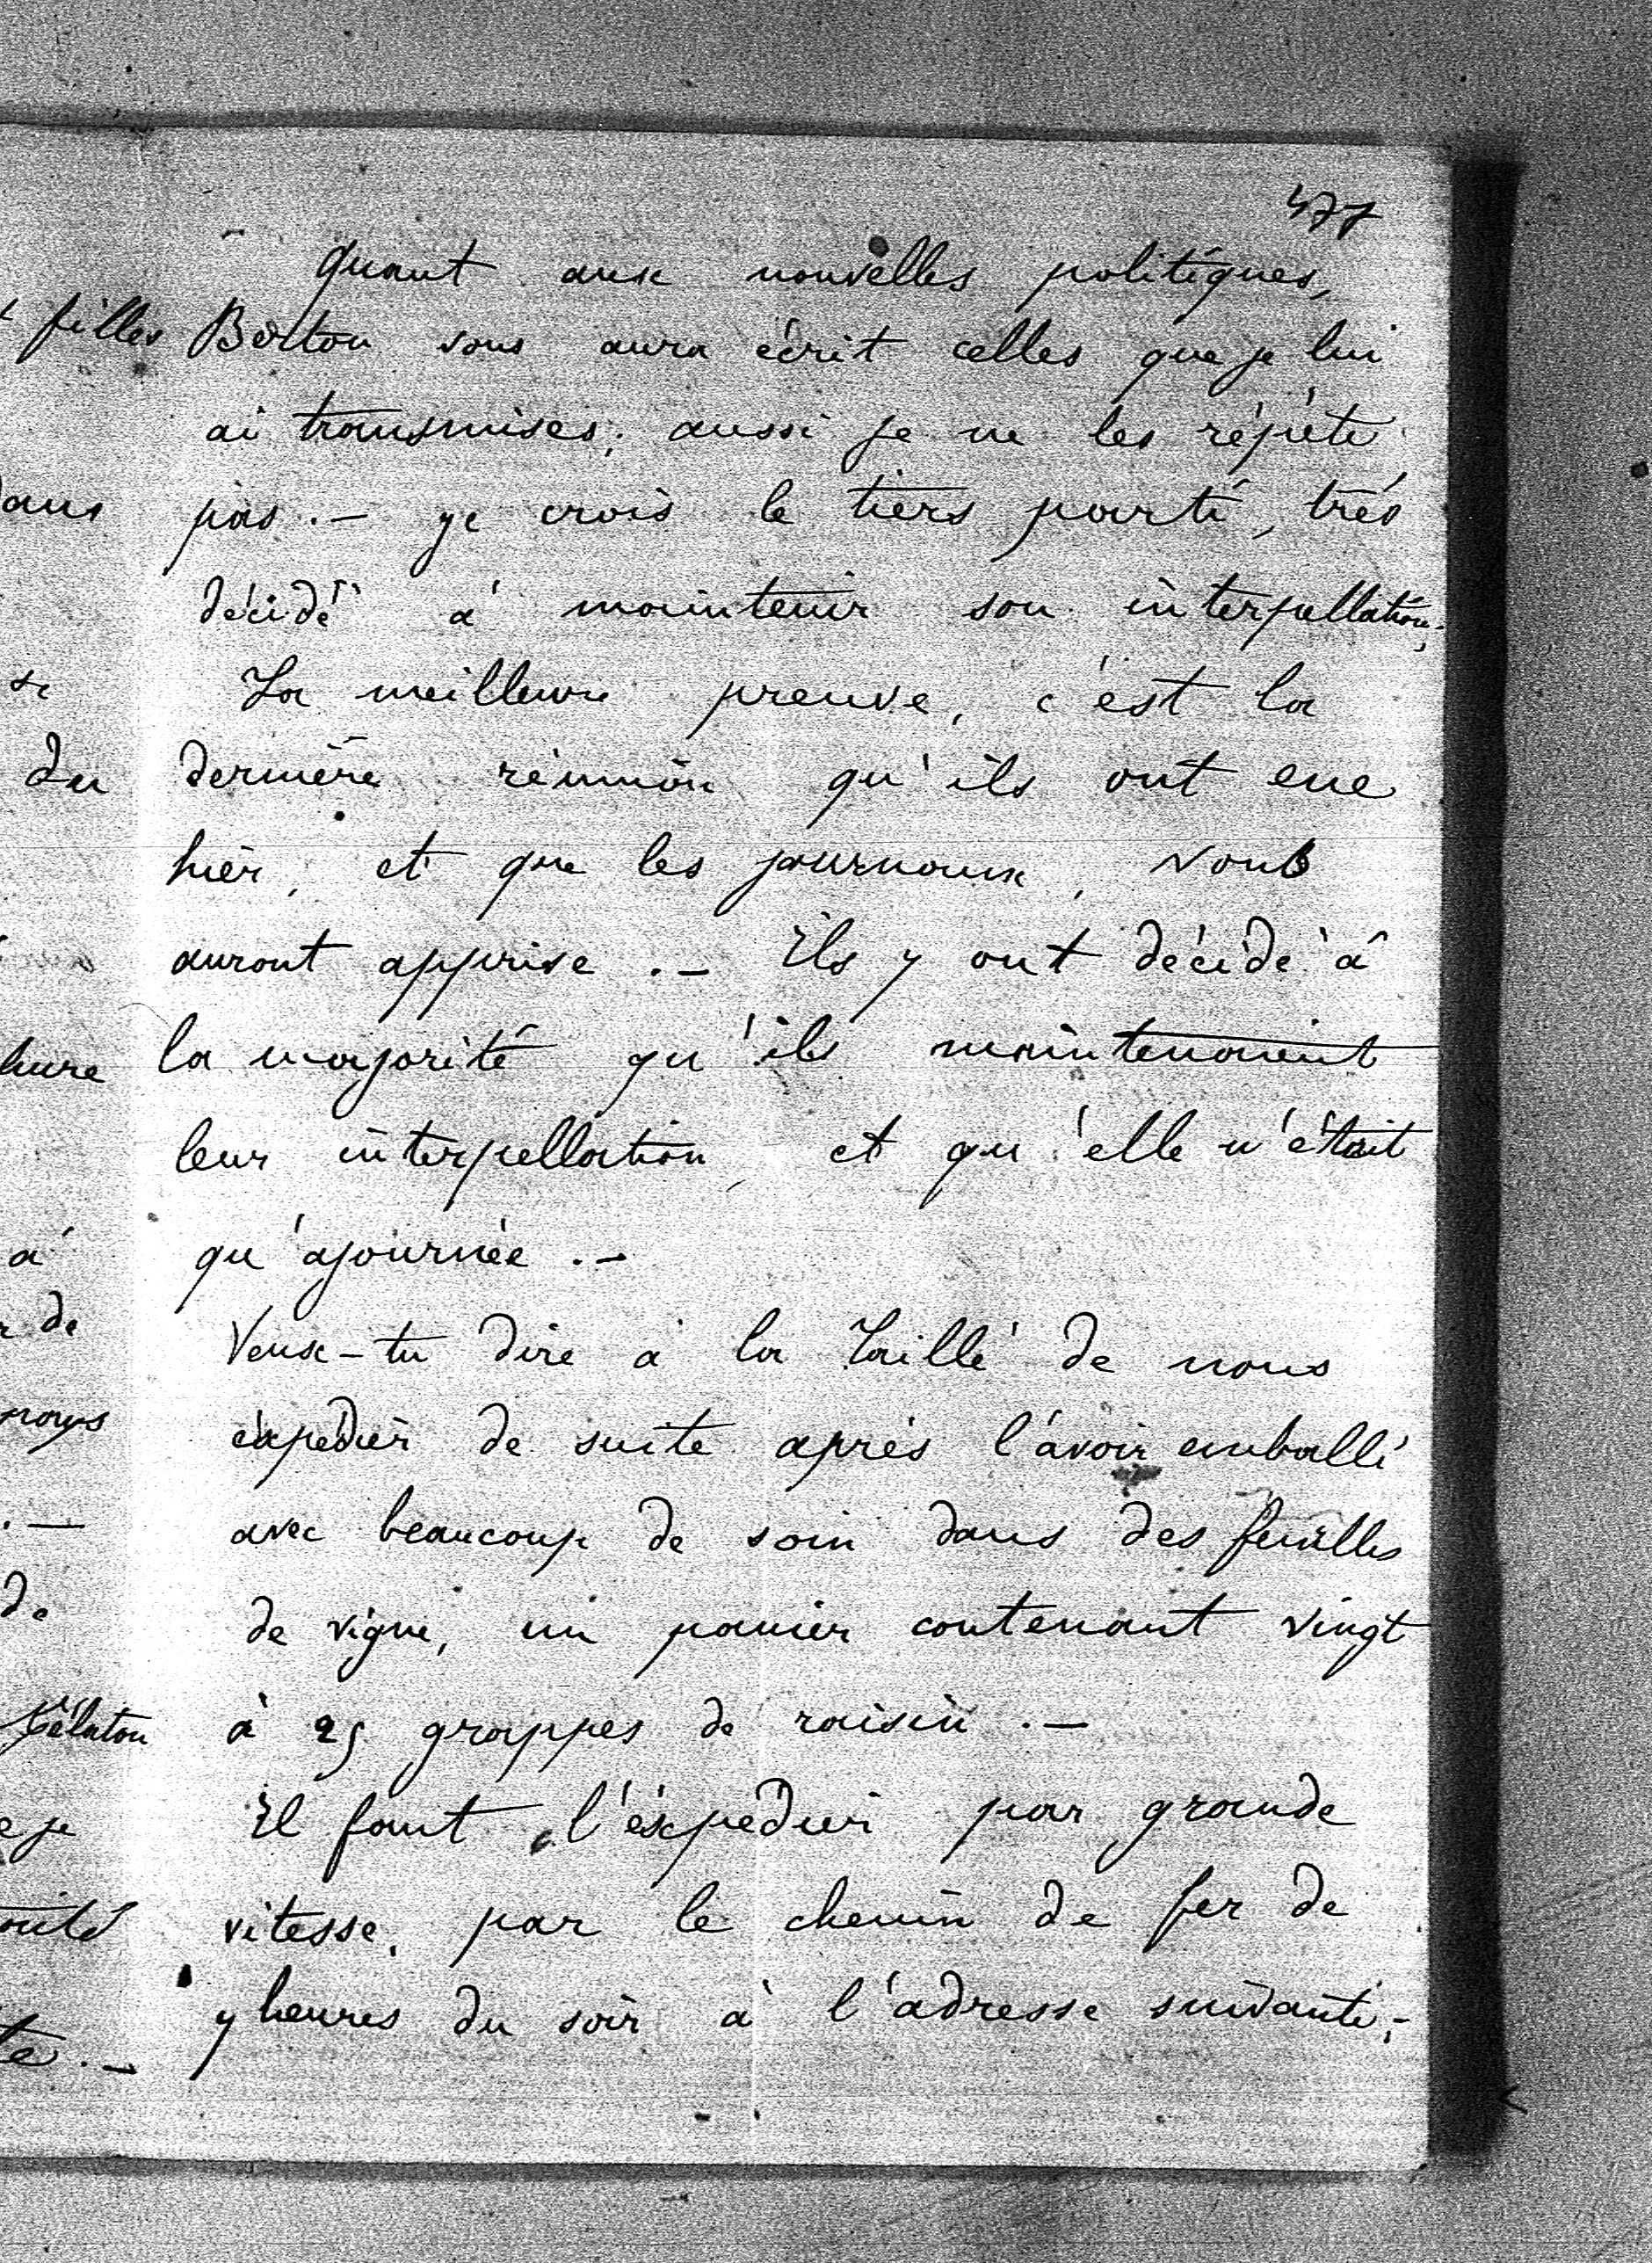 477
quant aux nouvelles politiques,
Berton vous aura écrit celles que je lui
ai transmises; aussi je ne les répète
pas. — je crois le tiers parti, très
décidé à maintenir son interpellation,
La meilleure preuve, c'est la
dernière réunion qu'ils ont eue
hier, et que les journaux, vous
auront apprise. — Ils y ont décidé à
la majorité qu'ils maintenaient
leur interpellation, et qu'elle n'était
qu'ajournée. —
Veux-tu dire à la Taille de nous
expédier de suite après l'avoir emballé
avec beaucoup de soin dans des feuilles
de vigne, un panier contenant vingt
à 25 grappes de raisin. —
Il faut l'expédier par grande
vitesse, par le chemin de fer de
7 heures du soir à l'adresse suivante; -
filles
se
du
à
de
pays
. —
de
te. —